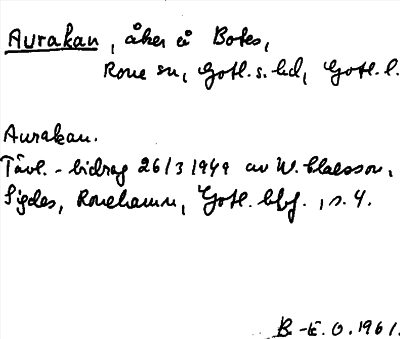 Aurakan, åker å Botes,
Rone sn, Gotl. s. hd, Gotl. l.
Aurakan.
Tävl.-bidrag 26/3 1949 av W. Claesson,
Sigdes, Ronehamn, Gotl. , s. 4.
B-E. O. 1961.